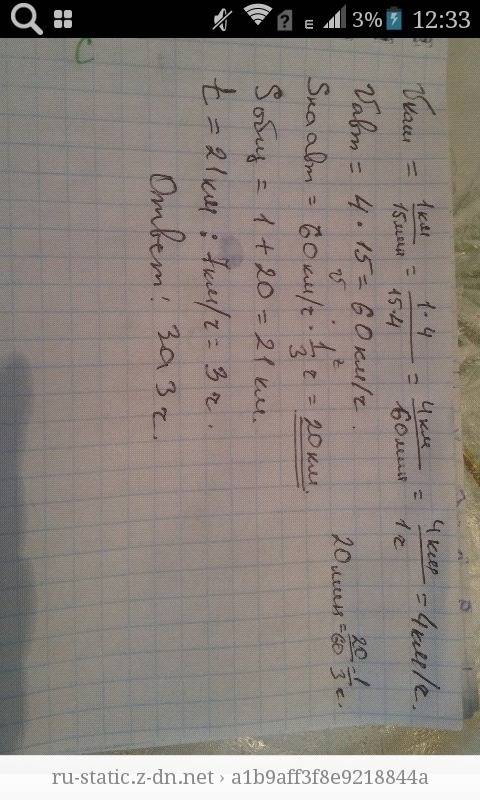 3% 12:33
C
V = 1км/15мин = 1·4/15·4 = 4км/60мин = 4км/1ч = 4км/ч.
Vавт = 4·15=60км/ч.
Sна авт = 60км/ч · 1/3 ч = 20км.
20мин = 20/60 = 1/3 ч.
Sобщ = 1+20=21км.
t = 21км : 7км/ч = 3ч.
Ответ: за 3ч.
ru-static.z-dn.net › a1b9aff3f8e9218844a